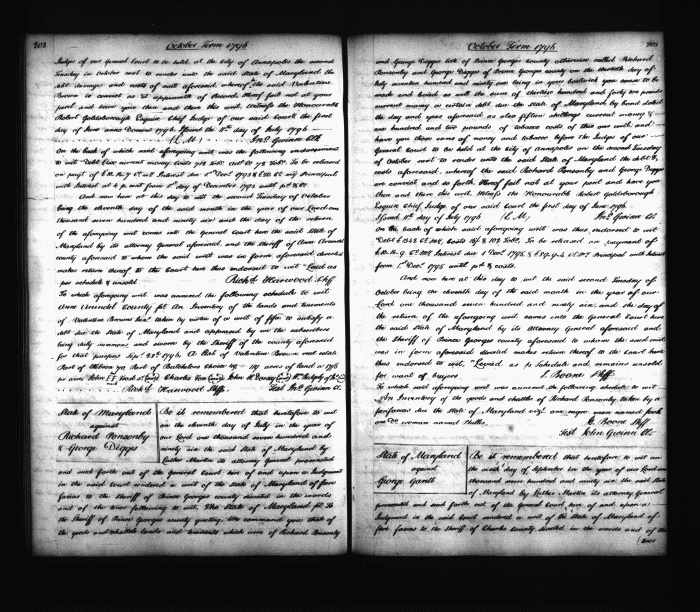 202
October Term 1796
Judges of our General Court to be held at the City of Annapolis the second
Tuesday in October next to render unto the said State of Maryland the
debt damages and costs of suit aforesaid whereof the said Valentine
Brown is convict as it appears of Record Hereof fail not at your peril
and have you then and there this writ. Witness the Honourable
Robert Goldsborough Esquire Chief Judge of our said Court the first
day of June anno Domini 1796. Issued the 11th day of July 1796
(L. M.) Jno. Gwinn Clk
On the back of which aforegoing writ was the following endorsement
to wit
And now here at this day to wit the second Tuesday of October
being the eleventh day of the said month in the year of our Lord one
thousand seven hundred and ninety six and the day of the return
of the aforegoing writ comes into the General Court here the said State of
Maryland by its attorney General aforesaid and the Sheriff of Ann Arundel
County aforesaid to whom the said writ was in form aforesaid directed
makes return thereof to the Court here thus endorsed to wit "Levied as
per schedule & unsold Richd. Harwood Shff
To which aforegoing writ was annexed the following schedule to wit
Ann Arundel County sst. An Inventory of the lands and tenements
of Valentine Brown taken by virtue of a writ of ffa to satisfy a
debt due the State of Maryland and appraised by us the subscribers
being duly summoned and sworn by the Sheriff of the County aforesaid
for that purpose Sept. 1796.
Richd. Harwood Shff. Test Jno. Gwinn Clk
State of Maryland
against
Richard Ponsonby
& George Diggs
Be it remembered that heretofore to wit
on the eleventh day of July in the year of
our Lord one thousand seven hundred and
ninety six the said State of Maryland by
Luther Martin its attorney General prosecuted
and sued forth out of the General Court here of and upon a Judgment in
the said Court rendered a writ of the State of Maryland of fieri
facias to the Sheriff of Prince Georges County directed in the words
and of the tenor following to wit, The State of Maryland sst. To
the Sheriff of Prince Georges County greeting, We command you that of
the goods and chattels lands and tenements which were of Richard Ponsonby
203
October Term 1796
and George Diggs late of Prince Georges County otherwise called Richard
Ponsonby and George Diggs of Prince Georges County on the thirtieth day of
July seventeen hundred and ninety one being in your bailiwick you cause to be
made and levied as well the sum of twelve hundred and forty two pounds
current money a certain debt due the State of Maryland by bond dated
the day and year aforesaid as also fifteen shillings current money &
one hundred and ten pounds of tobacco costs of this our writ and
have you those sums of money and tobacco before the Judges of our
General Court to be held at the City of Annapolis on the second Tuesday
of October next to render unto the said State of Maryland the debt &
costs aforesaid, whereof the said Richard Ponsonby and George Diggs
are convict and so forth Hereof fail not at your peril and have you
then and there this writ, Witness the Honourable Robert Goldsborough
Esquire Chief Judge of our said Court the first day of June 1796
Issued 11th day of July 1796 (L. M.) Jno. Gwinn Cl.
On the back of which aforegoing writ was thus endorsed to wit
And now here at this day to wit the second Tuesday of
October being the eleventh day of the said month in the year of our
Lord one thousand seven hundred and ninety six, and the day of
the return of the aforegoing writ comes into the General Court here
the said State of Maryland by its Attorney General aforesaid and
the Sheriff of Prince Georges County aforesaid to whom the said writ
was in form aforesaid directed makes return thereof to the Court here
thus endorsed to wit, "Levied as per Schedule and remains unsold
for want of buyers. Boone Shff.
To which said aforegoing writ was annexed the following schedule to wit
"An Inventory of the goods and chattels of Richard Ponsonby taken by a
fierifacias due the State of Maryland one negro man named Jack
one Do. woman named Phillis, Boone Shff
Test John Gwinn Cl.
State of Maryland
against
George Gantt
Be it remembered that heretofore to wit on
the sixth day of September in the year of our Lord one
thousand seven hundred and ninety six the said State
of Maryland by Luther Martin its attorney General
prosecuted and sued forth out of the General Court here of and upon a
Judgment in the said Court rendered a writ of the State of Maryland of
fieri facias to the Sheriff of Charles County directed in the words and of the